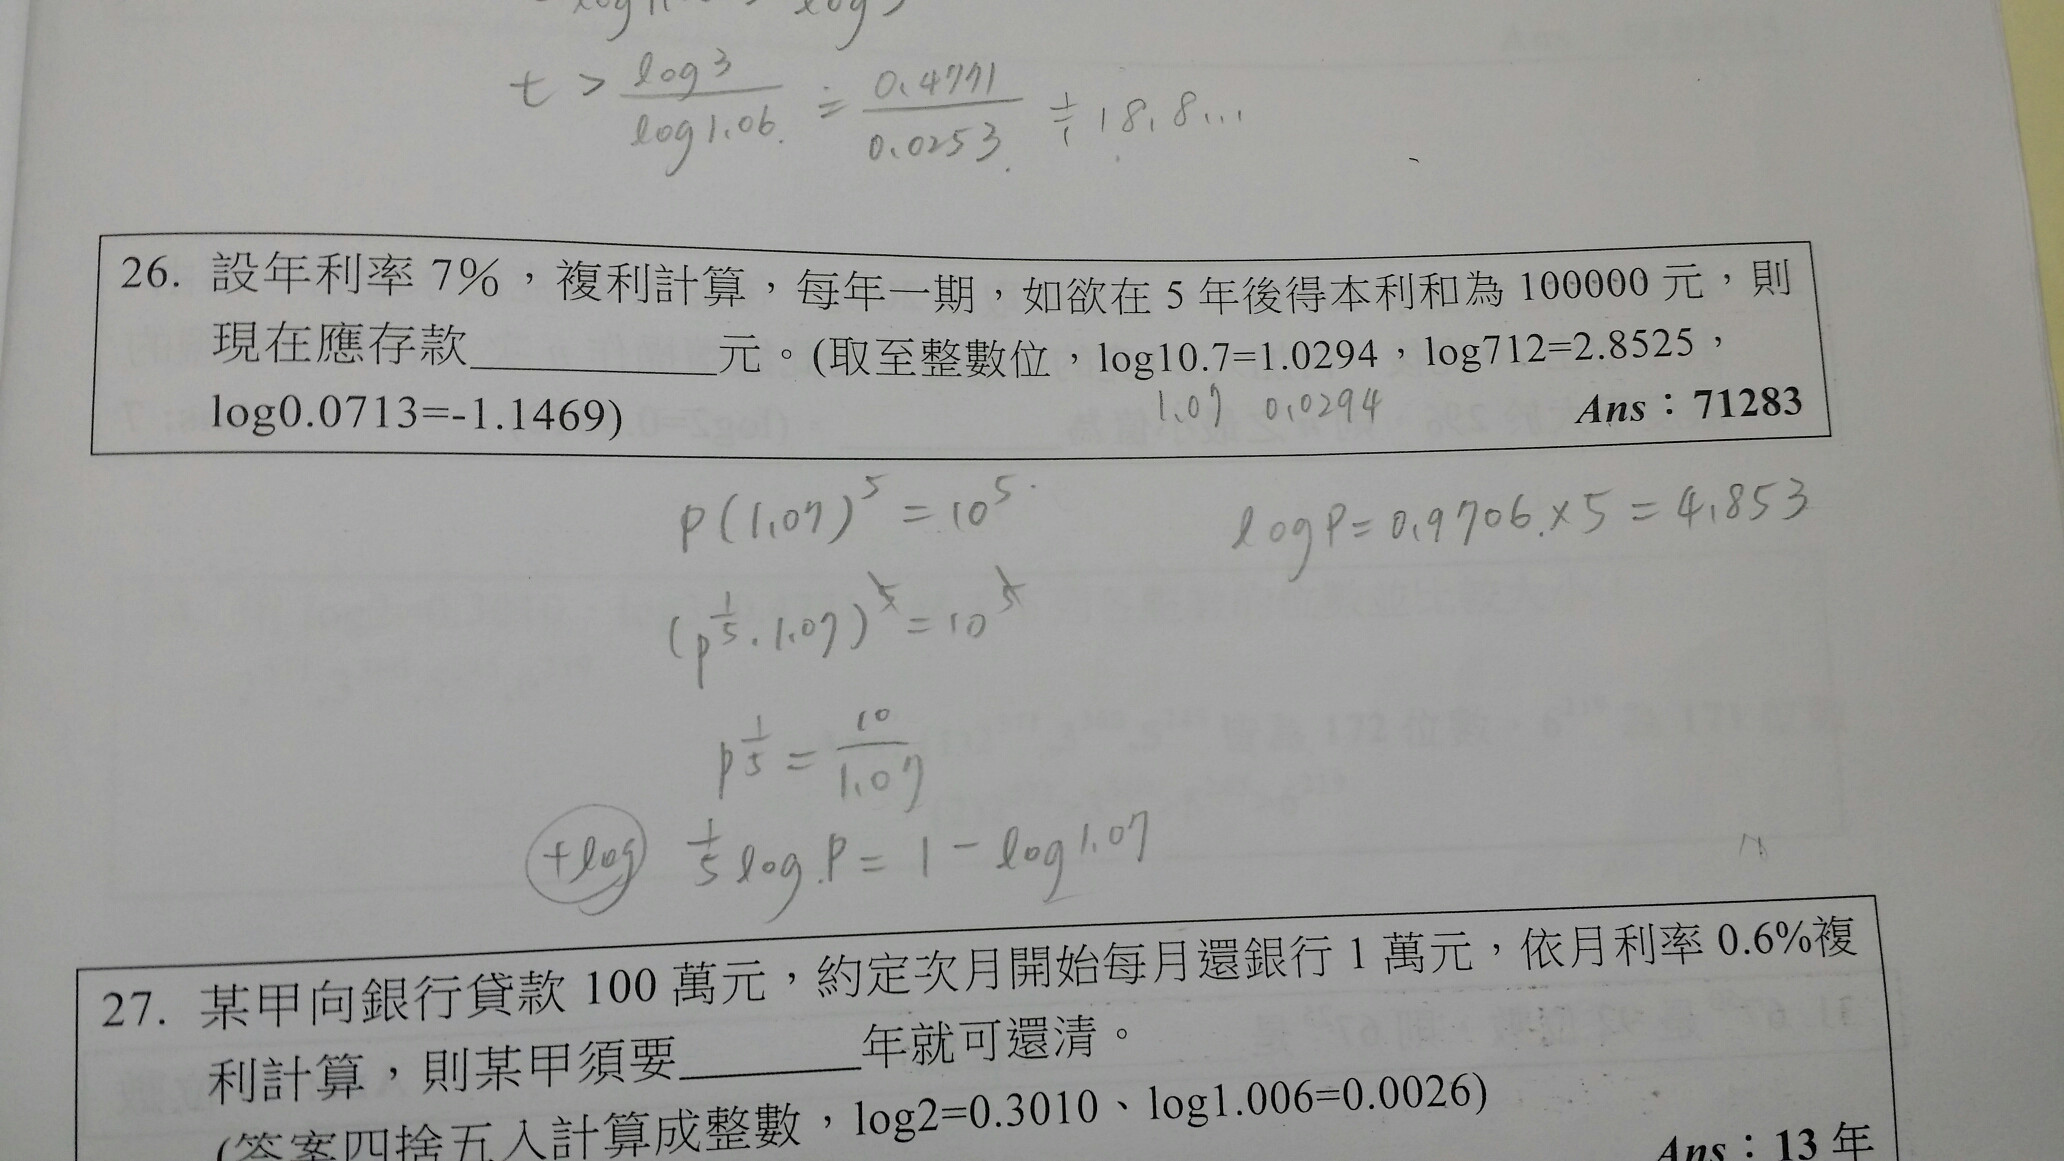 t > log3 / log1.06 ≑ 0.4771 / 0.0253 ≑ 18.8...
26. 設年利率 7%，複利計算，每年一期，如欲在 5 年後得本利和為 100000 元，則
現在應存款__________元。(取至整數位，log10.7=1.0294，log712=2.8525，
1.07 0.0294
log0.0713=-1.1469) Ans：71283
P(1.07)^5 = 10^5
logP = 0.9706 × 5 = 4.853
(P^{1/5} · 1.07)^5 = 10^5
P^{1/5} = 10 / 1.07
+log 1/5 log P = 1 - log1.07
27. 某甲向銀行貸款 100 萬元，約定次月開始每月還銀行 1 萬元，依月利率 0.6%複
利計算，則某甲須要_______年就可還清。
(答案四捨五入計算成整數，log2=0.3010、log1.006=0.0026)
Ans：13 年